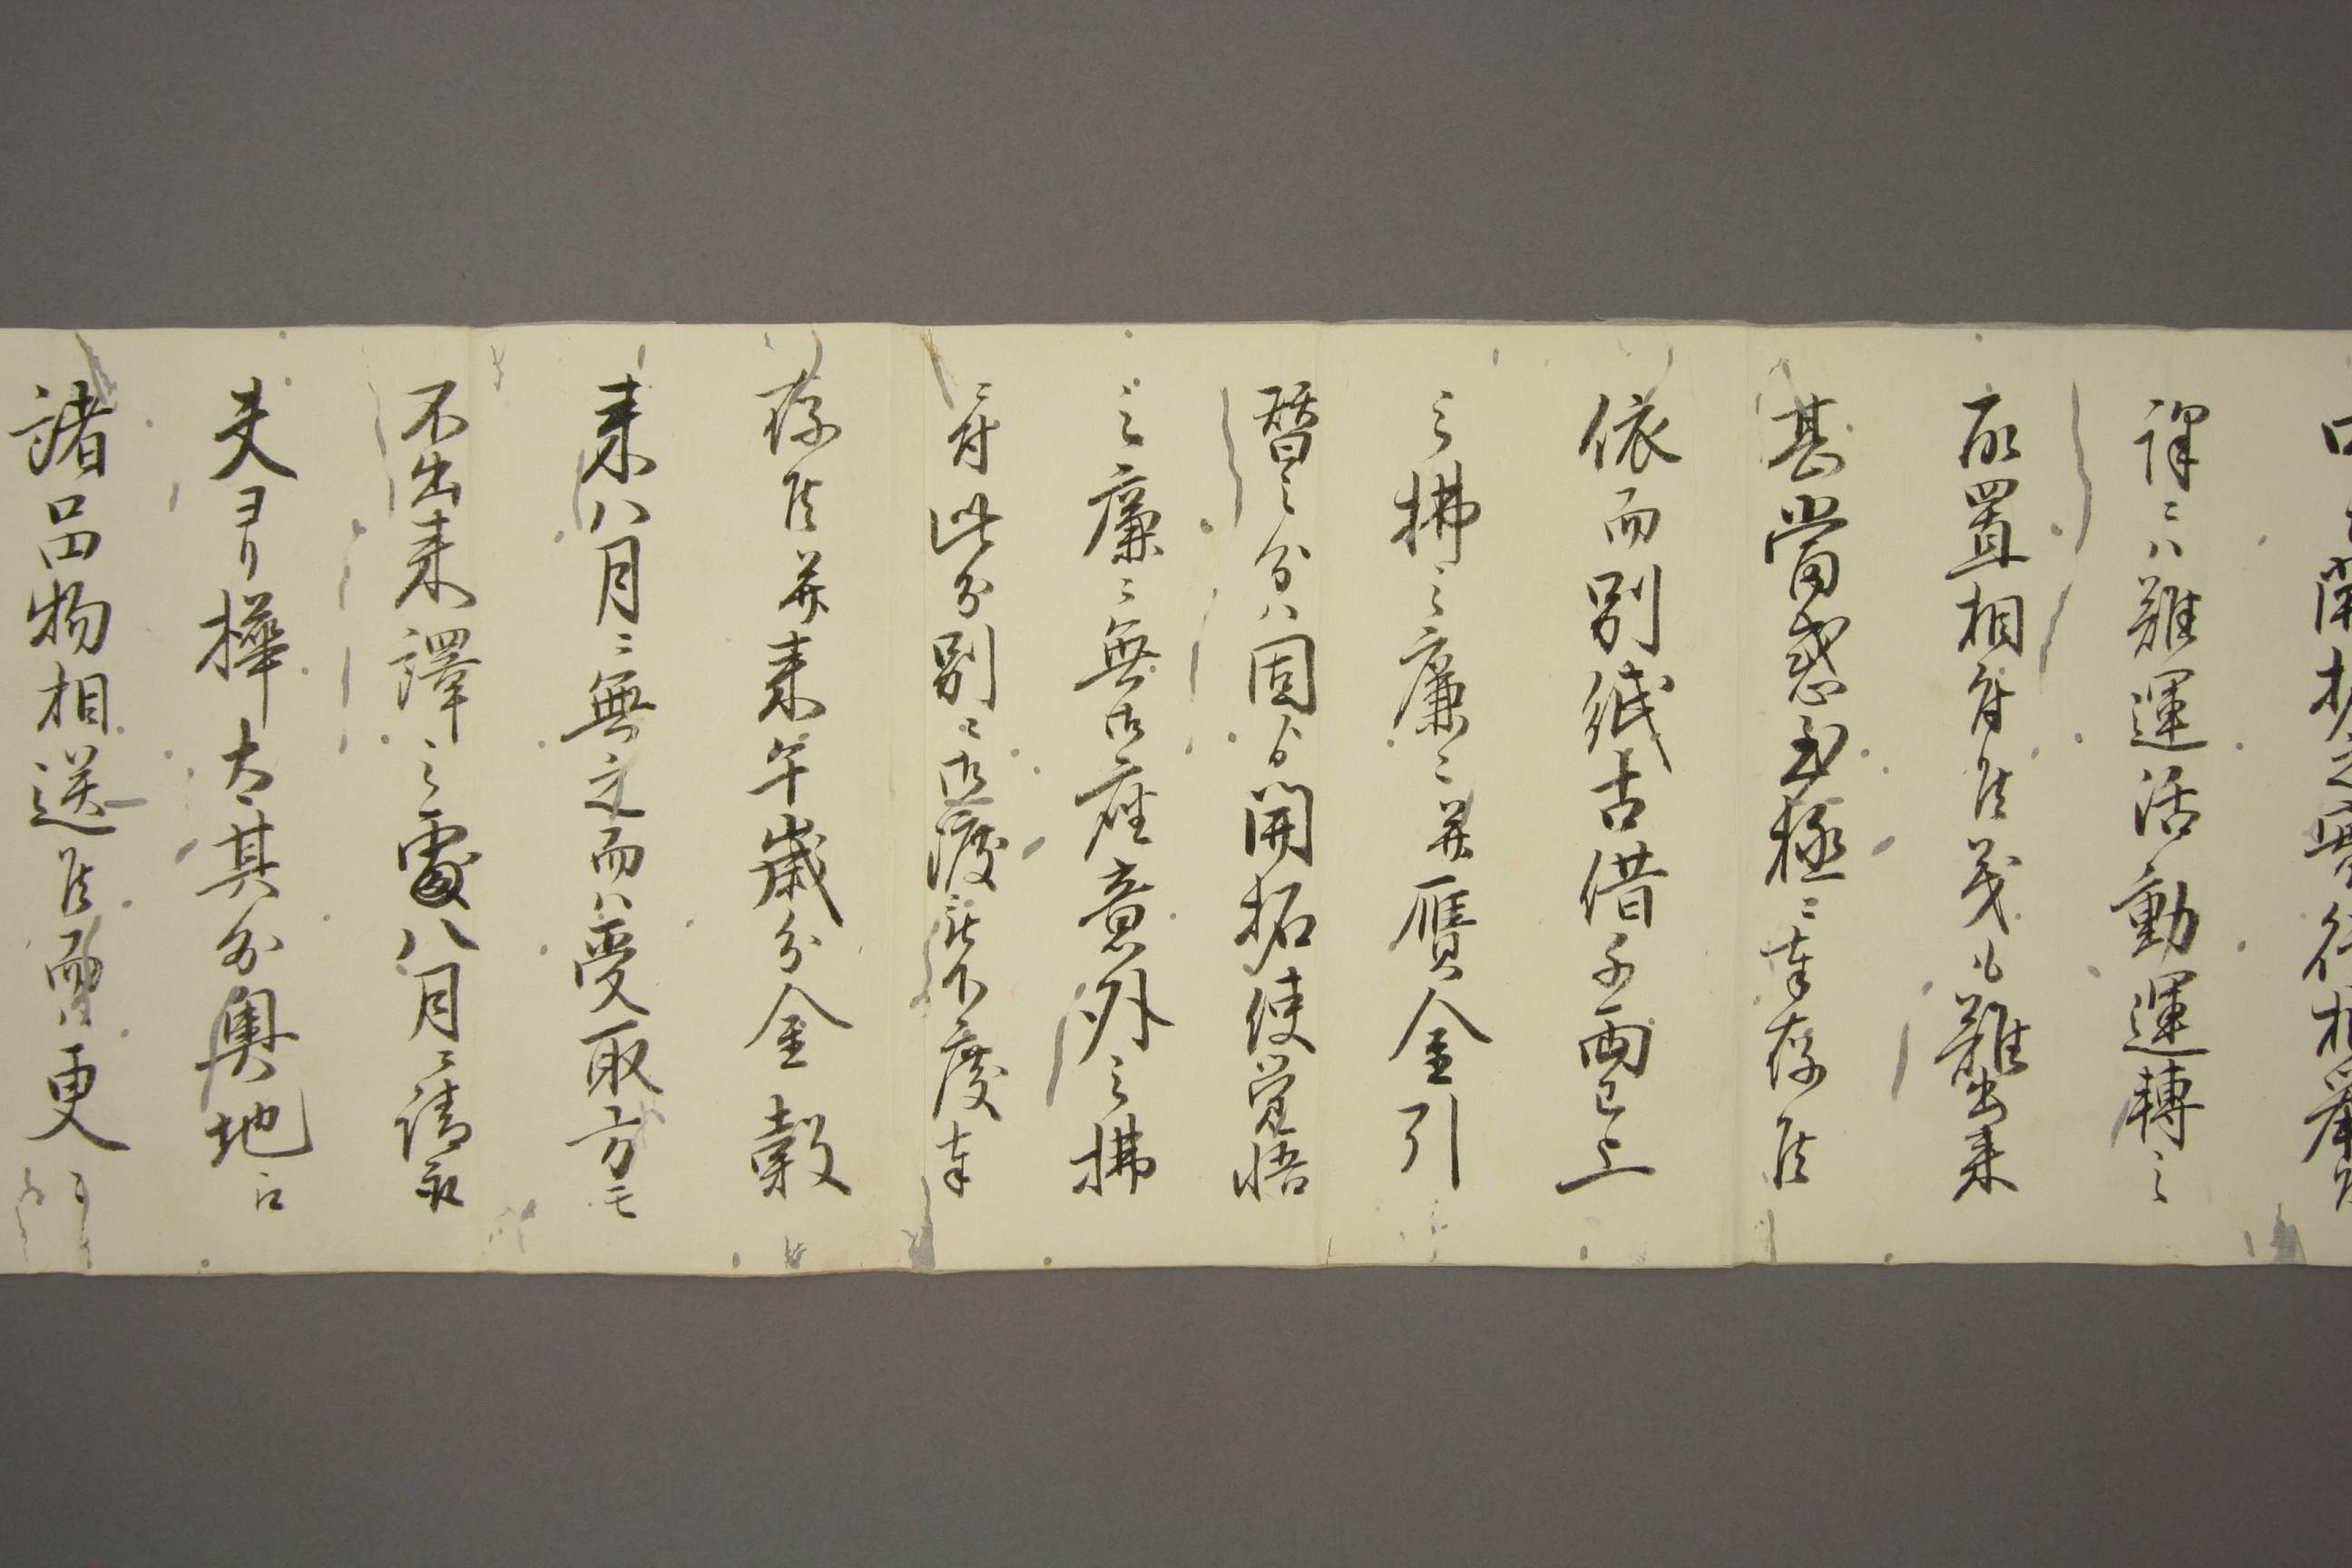 譯ニハ難運活動運轉之
取置相付候義も難出来
甚當惑至極ニ奉存候
依而別紙古借千両已上
之拂之廉ニ并贋金引
替之分ハ固より開拓使覚悟
之廉ニ無御座意外之拂
ニ付此分別ニ御渡被下度奉
存候并来年歳分金穀
来八月ニ無之而ハ受取方モ
不出来譯之處八月ニ請取
夫ヨリ樺太其外奥地江
諸品物相送候而ハ更